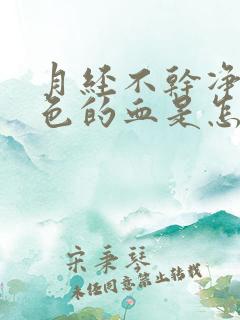 月经不幹净
色的血是怎
宋秉琴
未经同意禁止转载